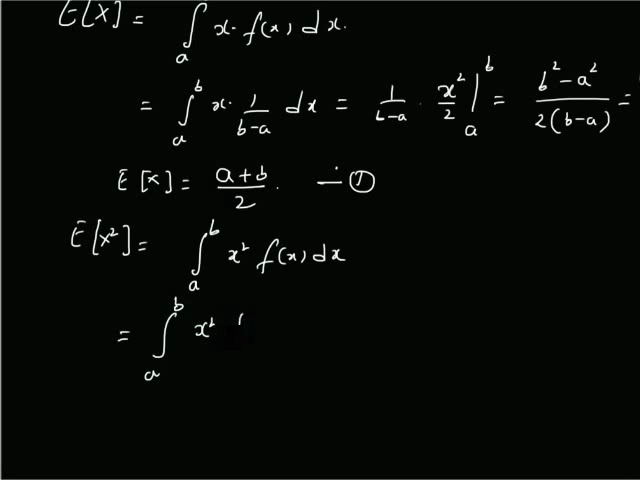 E[X] = ∫ₐ x. f(x) dx.
= ∫ₐᵇ x. 1/(b-a) dx = 1/(b-a) . x²/2 |ₐᵇ = (b²-a²)/(2(b-a)) =
E[X] = (a+b)/2. — ①
E[X²] = ∫ₐᵇ x² f(x) dx
= ∫ₐᵇ x²